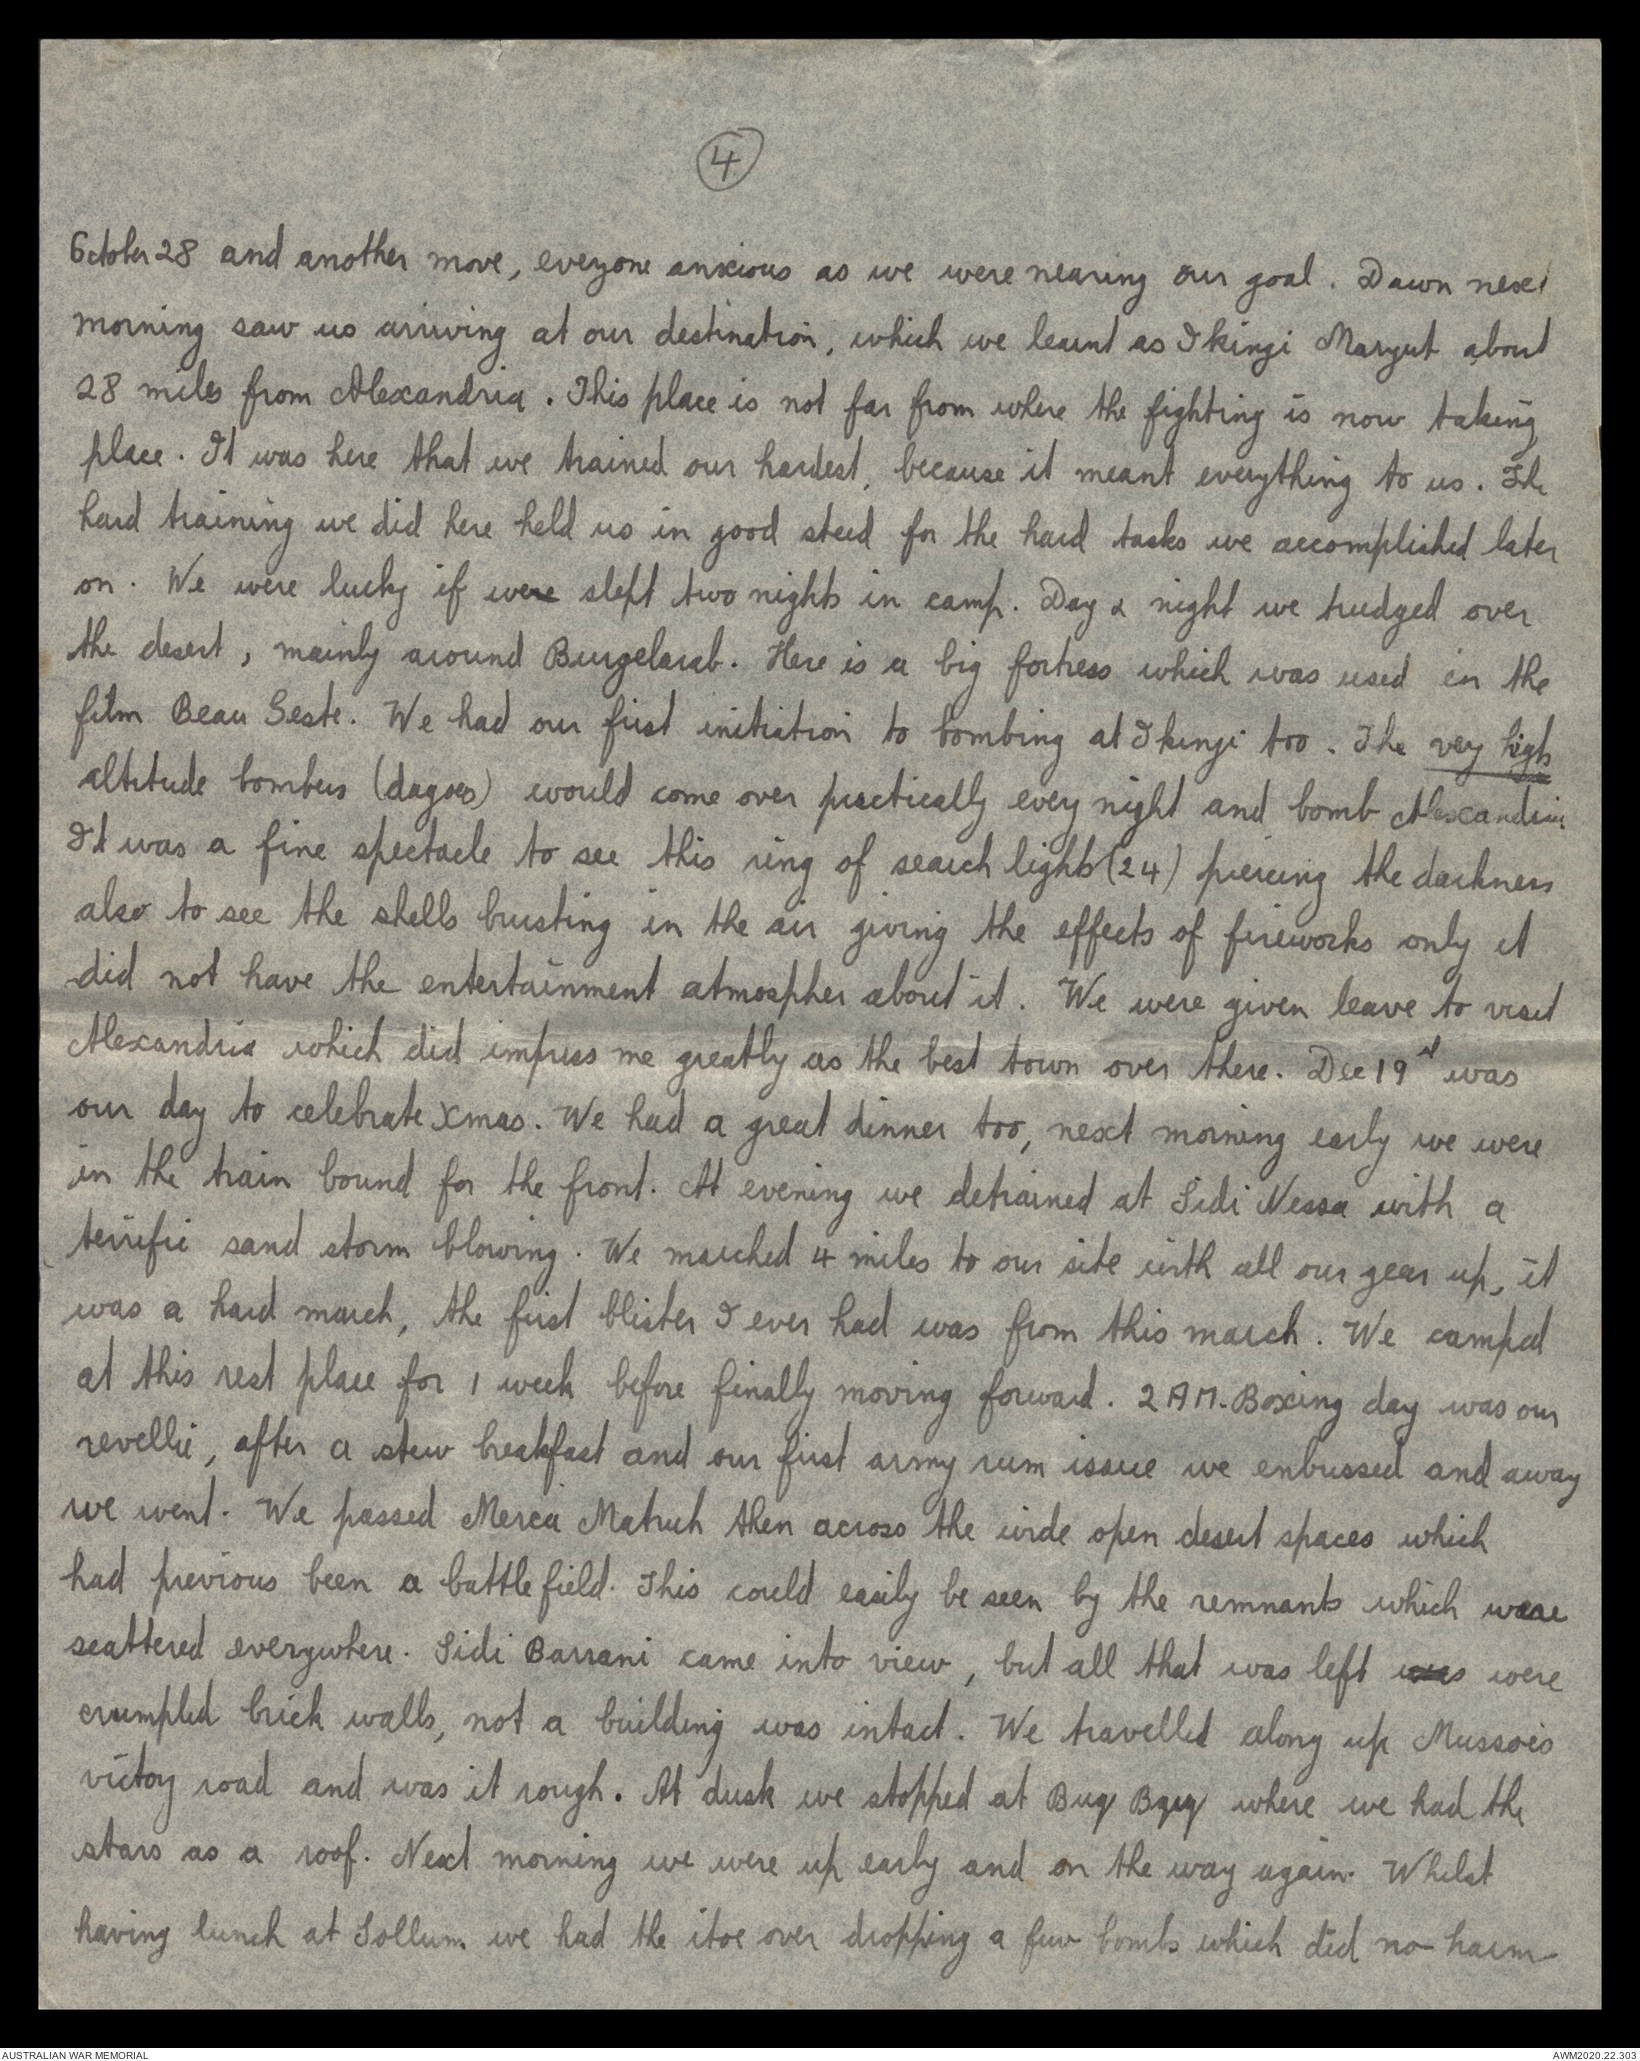 4
October 28 and another move, everyone anxious as we were nearing our goal. Dawn next
morning saw us arriving at our destination, which we learnt as Ikingi Maryut about
28 miles from Alexandria. This place is not far from where the fighting is now taking
place. It was here that we trained our hardest, because it meant everything to us. The
hard training we did here held us in good steed for the hard tasks we accomplished later
on. We were lucky if were slept two nights in camp. Day & night we trudged over
the desert, mainly around Burgelarab. Here is a big fortress which was used in the
film Beau Geste. We had our first initiation to bombing at Ikingi too. The very high
altitude bombers (dagoes) would come over practically every night and bomb Alexandria
It was a fine spectacle to see this ring of search lights (24) piercing the darkness
also to see the shells bursting in the air giving the effects of fireworks only it
did not have the entertainment atmospher about it. We were given leave to visit
Alexandria which did impress me greatly as the best town over there. Dec 19th was
our day to celebrate Xmas. We had a great dinner too, next morning early we were
in the train bound for the front. At evening we detrained at Sidi Nessa with a
terrific sand storm blowing. We marched 4 miles to our site with all our gear up, it
was a hard march, the first blister I ever had was from this march. We camped
at this rest place for 1 week before finally moving forward. 2 AM. Boxing day was our
revellie, after a stew breakfast and our first army rum issue we enbussed and away
we went. We passed Mersa Matruh then across the wide open desert spaces which
had previous been a battle field. This could easily be seen by the remnants which were
scattered everywhere. Sidi Barrani came into view, but all that was left was were
crumpled brick walls, not a building was intact. We travelled along up Musso's
victory road and was it rough. At dusk we stopped at Buq Bquq where we had the
stars as a roof. Next morning we were up early and on the way again. Whilst
having lunch at Sollum we had the itoe over dropping a few bombs which did no harm
AUSTRALIAN WAR MEMORIAL
AWM2020.22.303